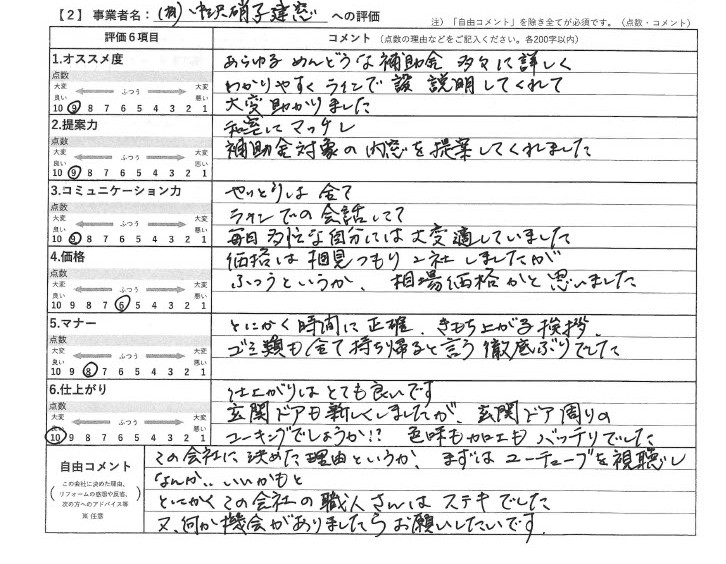 【2】事業者名：(有)　硝子建窓　への評価
注）「自由コメント」を除き全てが必須です。（点数・コメント）
評価6項目　コメント（点数の理由などをご記入ください。各200字以内）
1.オススメ度
点数
大変良い　ふつう　大変悪い
10 9 8 7 6 5 4 3 2 1
あらゆる めんどうな補助金 多々に詳しく
わかりやすく ラインで 設 説明してくれて
大変助かりました
2.提案力
点数
大変良い　ふつう　大変悪い
10 9 8 7 6 5 4 3 2 1
和室にマッチし
補助金対象の内窓を提案してくれました
3.コミュニケーション力
点数
大変良い　ふつう　大変悪い
10 9 8 7 6 5 4 3 2 1
やりとりは 全て
ラインでの会話してて
毎日多忙な自分には大変適していました
4.価格
点数
大変良い　ふつう　大変悪い
10 9 8 7 6 5 4 3 2 1
価格は相見つもり2社しましたが
ふつうというか、相場価格かと思いました
5.マナー
点数
大変良い　ふつう　大変悪い
10 9 8 7 6 5 4 3 2 1
とにかく時間に正確、きもち上がる挨拶、
ゴミ類も全て持ち帰ると言う徹底ぶりでした
6.仕上がり
点数
大変良い　ふつう　大変悪い
10 9 8 7 6 5 4 3 2 1
仕上がりはとても良いです
玄関ドアも新しくしましたが、玄関ドア周りの
コーキングでしょうか!? 色味も加工もバッチリでした
自由コメント
この会社に決めた理由、
リフォームの感想や反省、
次の方へのアドバイス等
※ 任意
この会社に決めた理由というか、まずはユーチューブを視聴し
なんか‥いいかもと
とにかくこの会社の職人さんはステキでした
又、何か機会がありましたらお願いしたいです。